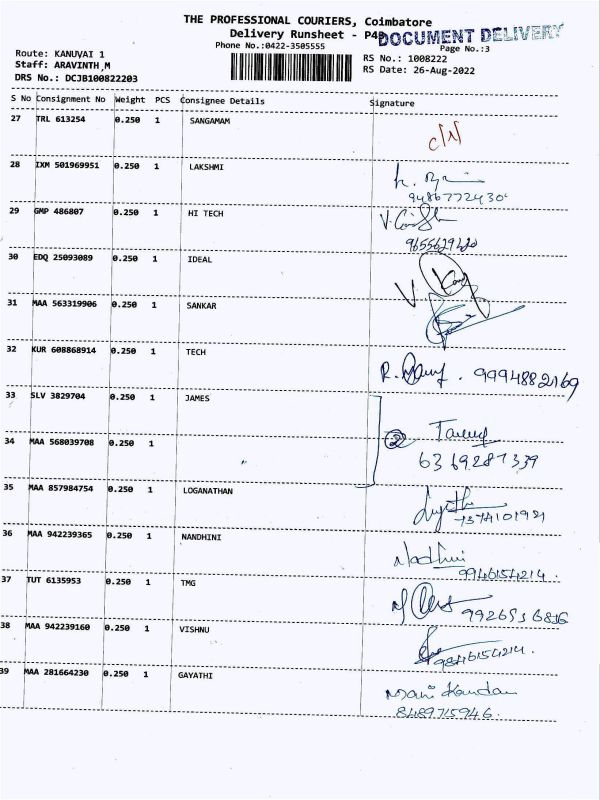 THE PROFESSIONAL COURIERS, Coimbatore
Delivery Runsheet - P48
DOCUMENT DELIVERY
Phone No.:0422-3505555
Page No.:3
Route: KANUVAI 1
Staff: ARAVINTH,M
DRS No.: DCJB100822203
RS No.: 1008222
RS Date: 26-Aug-2022
S No Consignment No Weight PCS Consignee Details Signature
27 TRL 613254 0.250 1 SANGAMAM
28 IXM 501969951 0.250 1 LAKSHMI
9486772430
29 GMP 486807 0.250 1 HI TECH
30 EDQ 25093089 0.250 1 IDEAL
31 MAA 563319906 0.250 1 SANKAR
32 KUR 608868914 0.250 1 TECH
9994882169
33 SLV 3829704 0.250 1 JAMES
34 MAA 568039708 0.250 1
2
6369287339
35 MAA 857984754 0.250 1 LOGANATHAN
7374101921
36 MAA 942239365 0.250 1 NANDHINI
Nadhini
9946154214.
37 TUT 6135953 0.250 1 TMG
9926536836
38 MAA 942239160 0.250 1 VISHNU
9846154214.
39 MAA 281664230 0.250 1 GAYATHI
Mani Kandan
8489715946.